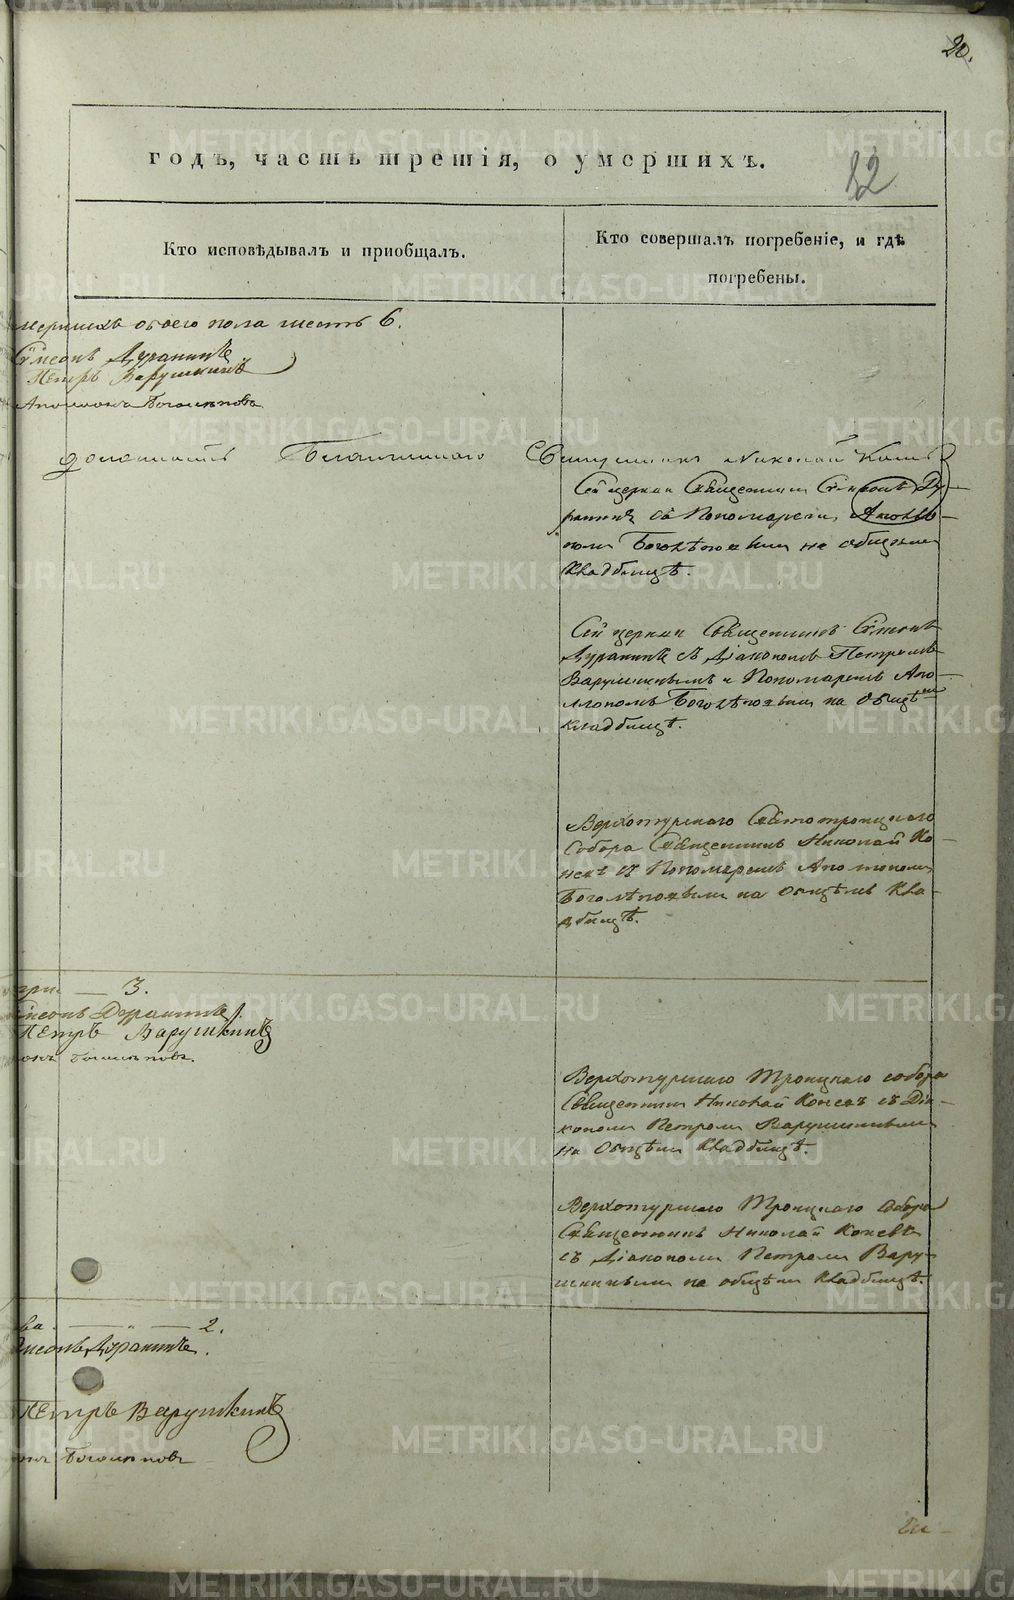 20.
годъ, часть третія, о умершихъ.
82
Кто исповѣдывалъ и приобщалъ.
Кто совершалъ погребеніе, и гдѣ
погребены.
обоего пола шесть 6.
Сѵмеонъ Дуранинъ
Петръ Варушкинъ
Священникъ Николай
Сей церкви Священникъ Сѵмеонъ Ду-
ранинъ съ Пономаремъ Аполло-
номъ Боголѣповымъ на общемъ
кладбищѣ.
Сей церкви Священникъ Сѵмеонъ
Дуранинъ съ Діакономъ Петромъ
Варушкинымъ и Пономаремъ Апо-
ллономъ Боголѣповымъ на общемъ
кладбищѣ.
Верхотурскаго Святотроицкаго
Собора Священникъ Николай Ко-
невъ съ Пономаремъ Аполлономъ
Боголѣповымъ на общемъ кла-
дбищѣ.
3.
Дуранинъ
Петръ Варушкинъ
Боголѣповъ.
Верхотурскаго Троицкаго собора
Священникъ Николай Коневъ съ Діа-
кономъ Петромъ Варушкинымъ
на общемъ кладбищѣ.
Верхотурскаго Троицкаго собора
Священникъ Николай Коневъ
съ Діакономъ Петромъ Вару-
шкинымъ на общемъ кладбищѣ.
2.
Дуранинъ.
Петръ Варушкинъ
Боголѣповъ
METRIKI.GASO-URAL.RU